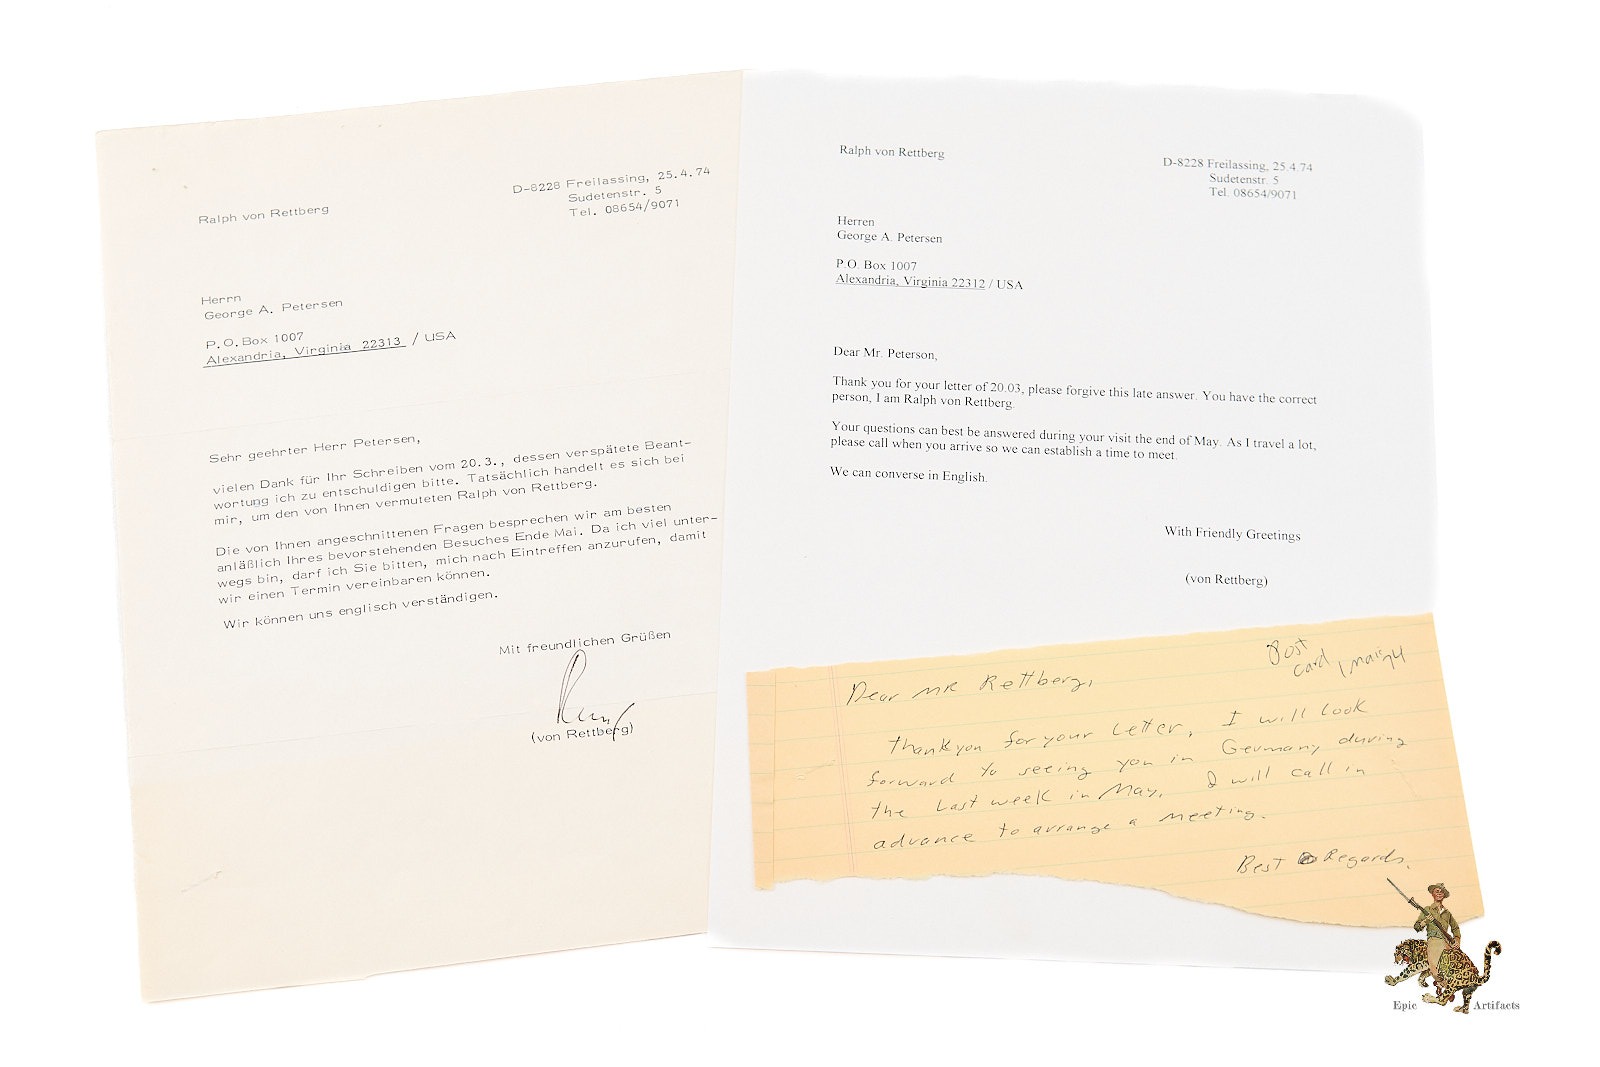 Ralph von Rettberg
D-8228 Freilassing, 25.4.74
Sudetenstr. 5
Tel. 08654/9071
Herrn
George A. Petersen
P.O.Box 1007
Alexandria, Virginia 22313 / USA
Sehr geehrter Herr Petersen,
vielen Dank für Ihr Schreiben vom 20.3., dessen verspätete Beant-
wortung ich zu entschuldigen bitte. Tatsächlich handelt es sich bei
mir, um den von Ihnen vermuteten Ralph von Rettberg.
Die von Ihnen angeschnittenen Fragen besprechen wir am besten
anläßlich Ihres bevorstehenden Besuches Ende Mai. Da ich viel unter-
wegs bin, darf ich Sie bitten, mich nach Eintreffen anzurufen, damit
wir einen Termin vereinbaren können.
Wir können uns englisch verständigen.
Mit freundlichen Grüßen
(von Rettberg)
Ralph von Rettberg
D-8228 Freilassing, 25.4.74
Sudetenstr. 5
Tel. 08654/9071
Herren
George A. Petersen
P.O. Box 1007
Alexandria, Virginia 22312 / USA
Dear Mr. Peterson,
Thank you for your letter of 20.03, please forgive this late answer. You have the correct
person, I am Ralph von Rettberg.
Your questions can best be answered during your visit the end of May. As I travel a lot,
please call when you arrive so we can establish a time to meet.
We can converse in English.
With Friendly Greetings
(von Rettberg)
Post
card 1 mai 74
Dear MR Rettberg,
Thankyou for your Letter, I will look
forward to seeing you in Germany during
the Last week in May. I will call in
advance to arrange a meeting.
Best Regards,
Epic Artifacts